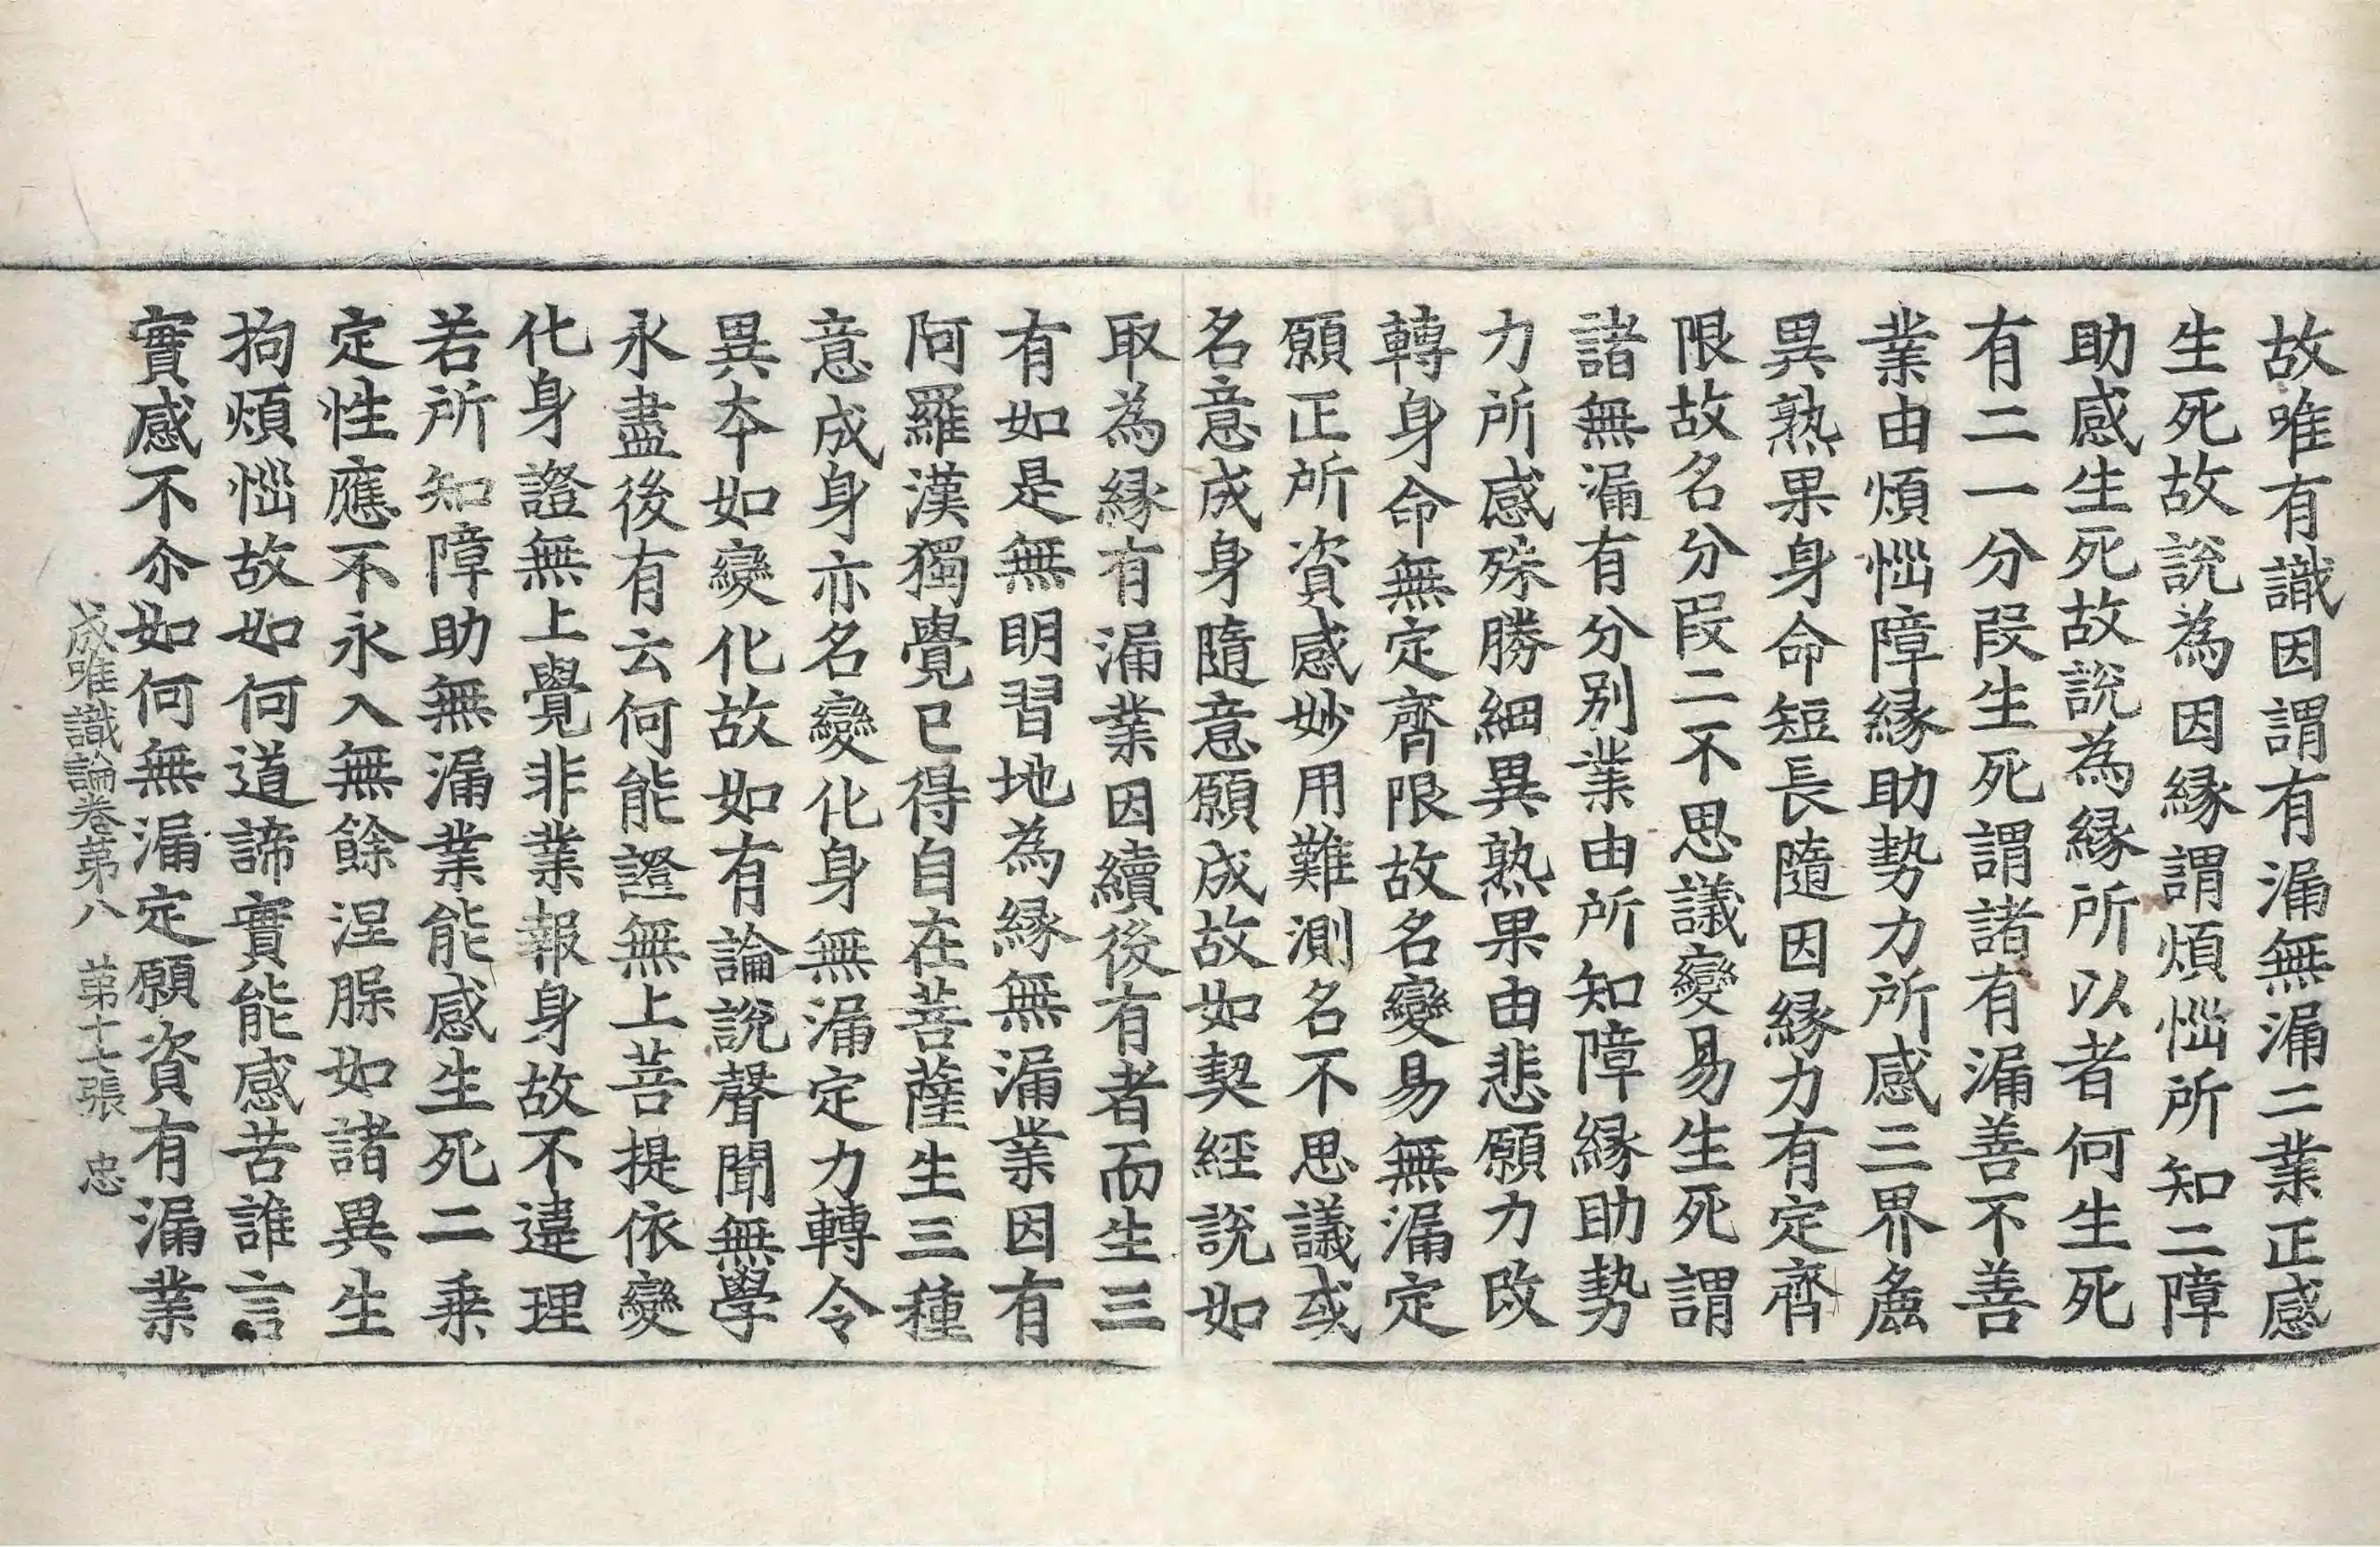 故唯有識因謂有漏無漏二業正感
生死故說為因緣謂煩惱所知二障
助感生死故說為緣所以者何生死
有二一分段生死謂諸有漏善不善
業由煩惱障緣助勢力所感三界麁
異熟果身命短長隨因緣力有定齊
限故名分段二不思議變易生死謂
諸無漏有分別業由所知障緣助勢
力所感殊勝細異熟果由悲願力改
轉身命無定齊限故名變易無漏定
願正所資感妙用難測名不思議或
名意成身隨意願成故如契經說如
取為緣有漏業因續後有者而生三
有如是無明習地為緣無漏業因有
阿羅漢獨覺已得自在菩薩生三種
意成身亦名變化身無漏定力轉令
異夲如變化故如有論說聲聞無學
永盡後有云何能證無上菩提依變
化身證無上覺非業報身故不違理
若所知障助無漏業能感生死二乘
定性應不永入無餘涅槃如諸異生
拘煩惱故如何道諦實能感苦誰言
實感不尒如何無漏定願資有漏業
成唯識論卷第八 第十七張 忠